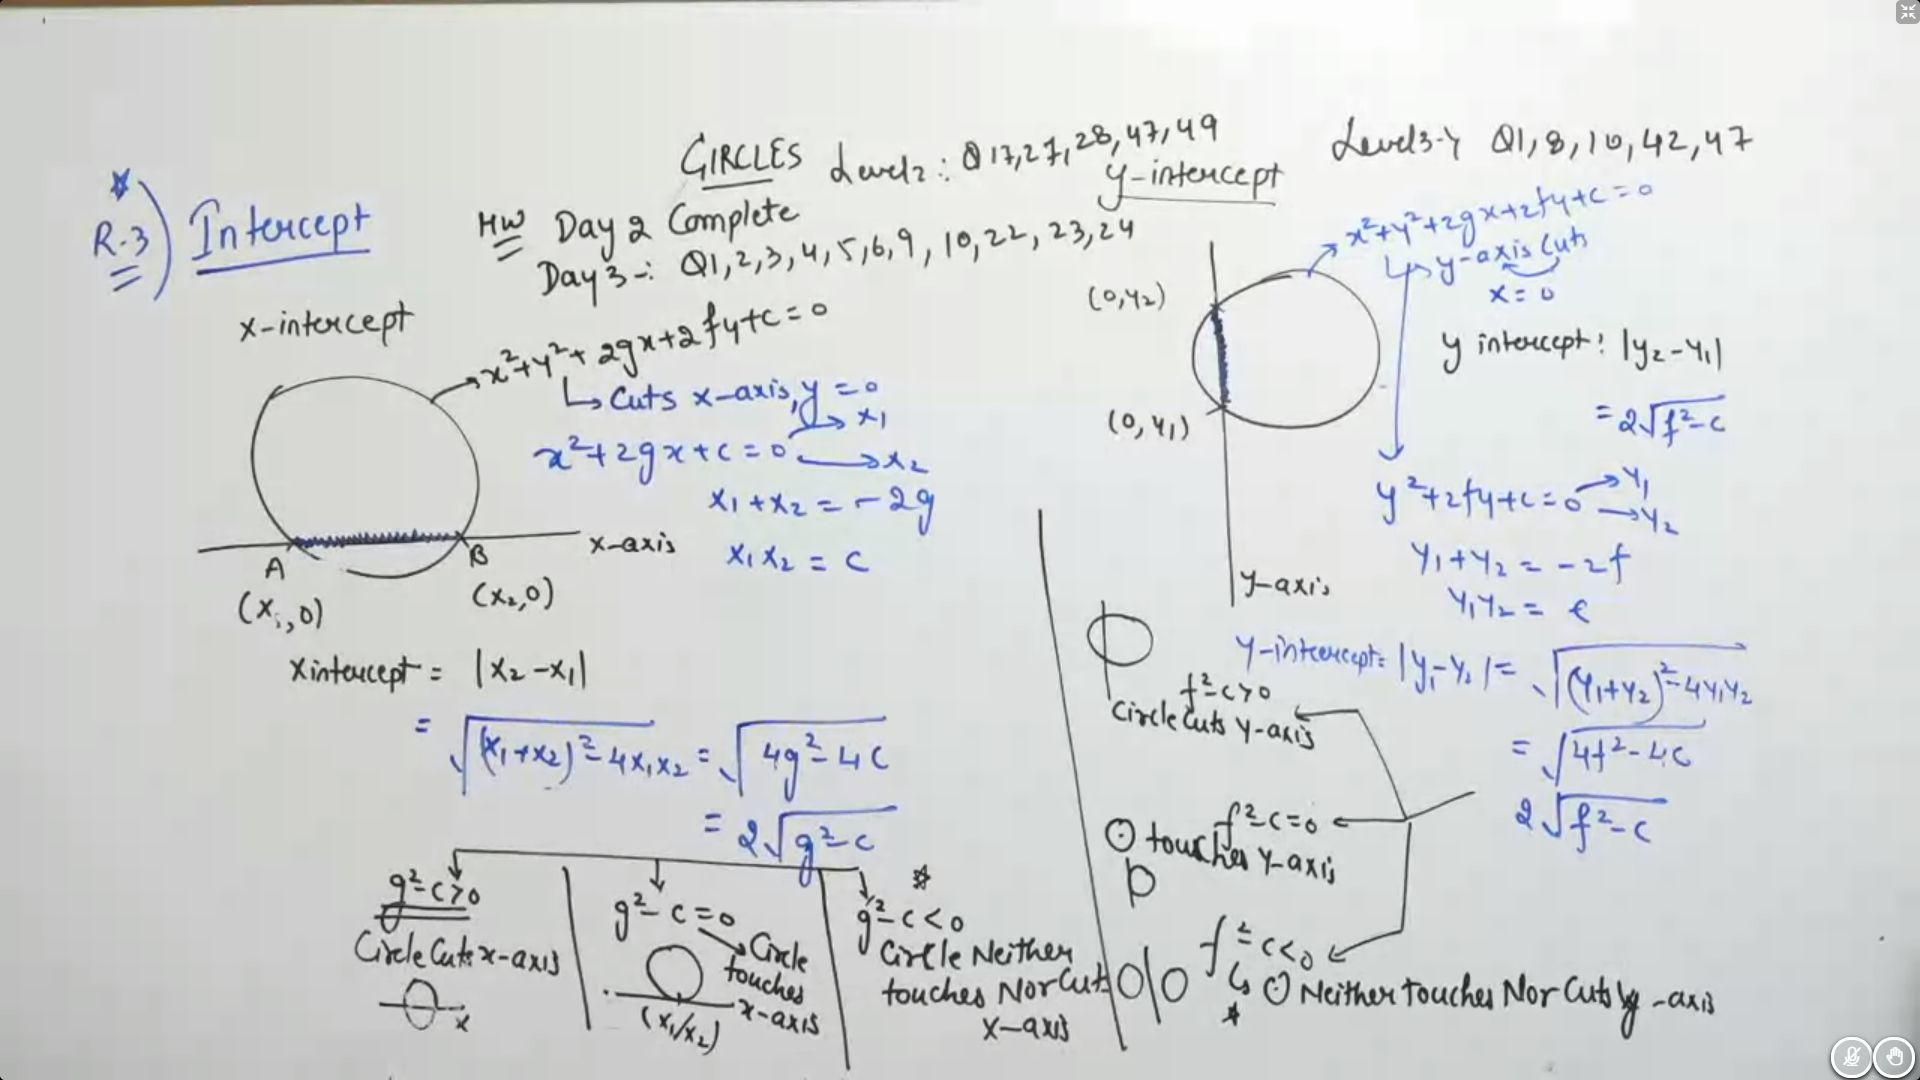 CIRCLES Level2: Q17,27,28,47,49
Level3:- Q1,8,10,42,47
R-3) Intercept
HW Day 2 Complete
Day 3 -: Q1,2,3,4,5,6,9,10,22,23,24
x-intercept
x²+y²+2gx+2fy+c=0
↳ Cuts x-axis, y=0
x²+2gx+c=0 → x₁
→ x₂
x₁+x₂ = -2g
x₁x₂ = c
x-axis
A
B
(x₁,0)
(x₂,0)
x intercept = |x₂-x₁|
= √(x₁+x₂)²-4x₁x₂ = √4g²-4c
= 2√g²-c
g²-c>0
Circle Cuts x-axis
x
g²-c=0
Circle
touches
x-axis
(x₁/x₂)
g²-c<0
Circle Neither
touches Nor Cuts
x-axis
y-intercept
x²+y²+2gx+2fy+c=0
↳ y-axis Cuts
x=0
(0,y₂)
(0,y₁)
y-axis
y intercept: |y₂-y₁|
= 2√f²-c
y²+2fy+c=0 → y₁
→ y₂
y₁+y₂ = -2f
y₁y₂ = c
y-intercept = |y₁-y₂| = √(y₁+y₂)²-4y₁y₂
= √4f²-4c
2√f²-c
f²-c>0
Circle Cuts y-axis
f²-c=0
⊙ touches y-axis
f²-c<0
↳ ⊙ Neither touches Nor Cuts y-axis